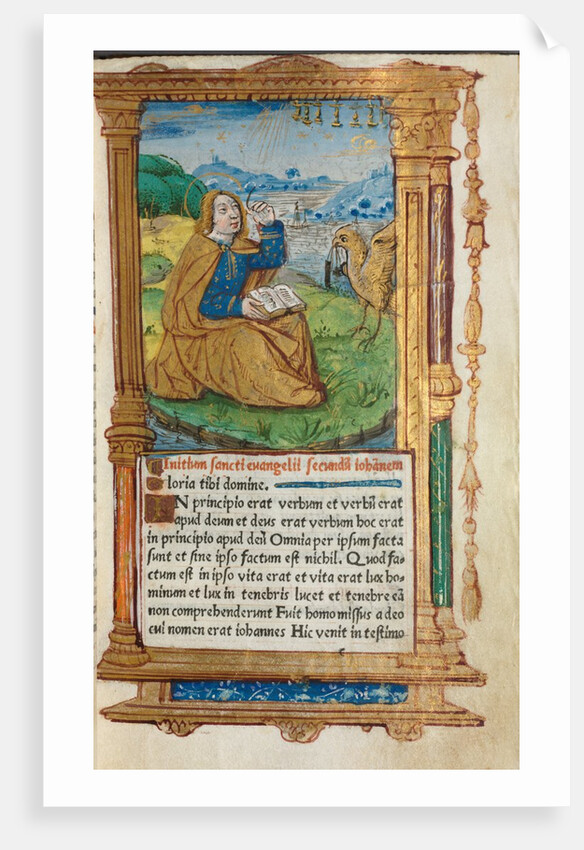 Initium sancti euangelii secundũ iohãnem
loria tibi domine.
IN principio erat verbum et verbũ erat
apud deum et deus erat verbum hoc erat
in principio apud deũ Omnia per ipsum facta
sunt et sine ipso factum est nichil. Quod fa⸗
ctum est in ipso vita erat et vita erat lux ho⸗
minum et lux in tenebris lucet et tenebre eã
non comprehenderunt Fuit homo missus a deo
cui nomen erat iohannes Hic venit in testimo